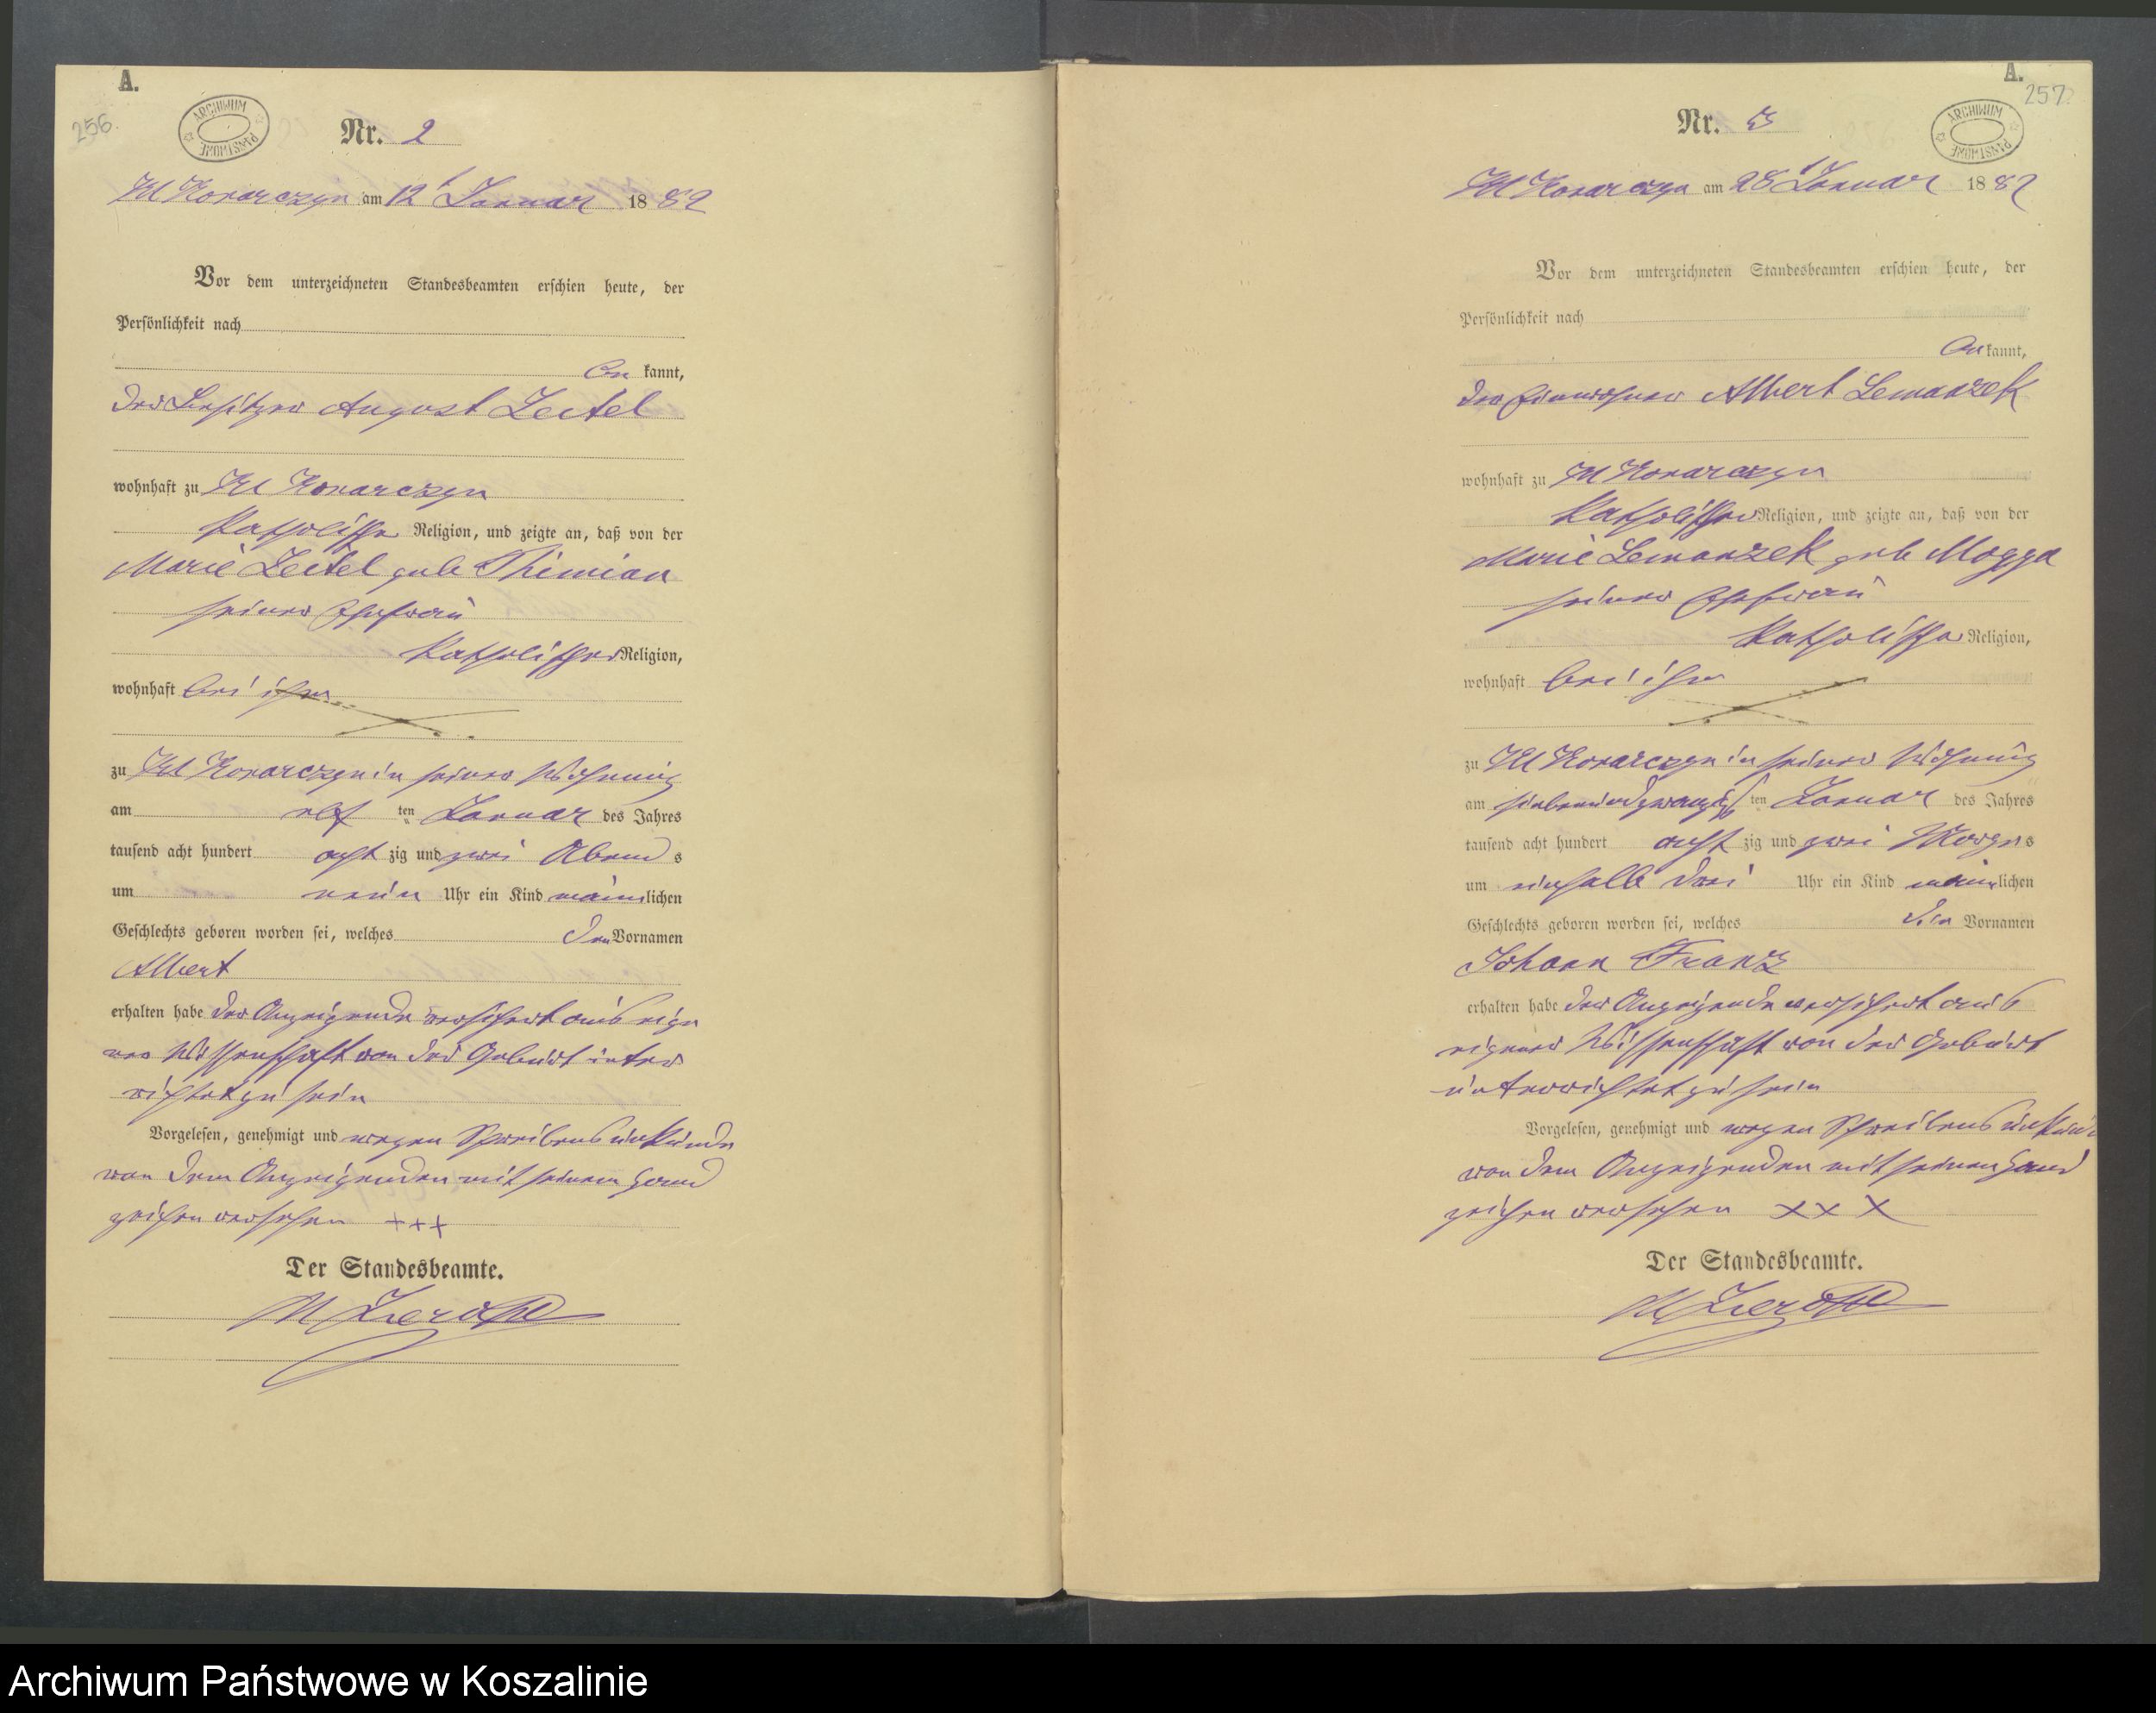 A.
256.
ARCHIWUM PAŃSTWOWE
Nr. 2
Kl Konarczyn am 12 Januar 1882
Vor dem unterzeichneten Standesbeamten erschien heute, der
Persönlichkeit nach
be kannt,
der Besitzer August Zeitel
wohnhaft zu Kl Konarczyn
katholischer Religion, und zeigte an, daß von der
Marie Zeitel geb Thimian
seiner Ehefrau
katholischer Religion,
wohnhaft bei ihm
zu Kl Konarczyn in seiner Wohnung
am elf ten Januar des Jahres
tausend acht hundert acht zig und zwei Abend s
um neun Uhr ein Kind männ lichen
Geschlechts geboren worden sei, welches den Vornamen
Albert
erhalten habe der Anzeigende versichert aus eige
ner Wissenschaft von der Geburt unter
richtet zu sein
Vorgelesen, genehmigt und wegen Schreibensunkunde
von dem Anzeigenden mit seinem Hand
zeichen versehen +++
Der Standesbeamte.
A.
257
ARCHIWUM PAŃSTWOWE
Nr. 3
Kl Konarczyn am 28 Januar 1882
Vor dem unterzeichneten Standesbeamten erschien heute, der
Persönlichkeit nach
be kannt,
der Einwohner Albert Lemanzek
wohnhaft zu Kl Konarczyn
katholischer Religion, und zeigte an, daß von der
Marie Lemanzek geb Mogga
seiner Ehefrau
katholischer Religion,
wohnhaft bei ihm
zu Kl Konarczyn in seiner Wohnung
am siebenundzwanzigs ten Januar des Jahres
tausend acht hundert acht zig und zwei Morgens
um einhalb drei Uhr ein Kind männ lichen
Geschlechts geboren worden sei, welches den Vornamen
Johann Franz
erhalten habe der Anzeigende versichert aus
eigener Wissenschaft von der Geburt
unterrichtet zu sein
Vorgelesen, genehmigt und wegen Schreibensunkunde
von dem Anzeigenden mit seinem Hand
zeichen versehen xxx
Der Standesbeamte.
Archiwum Państwowe w Koszalinie